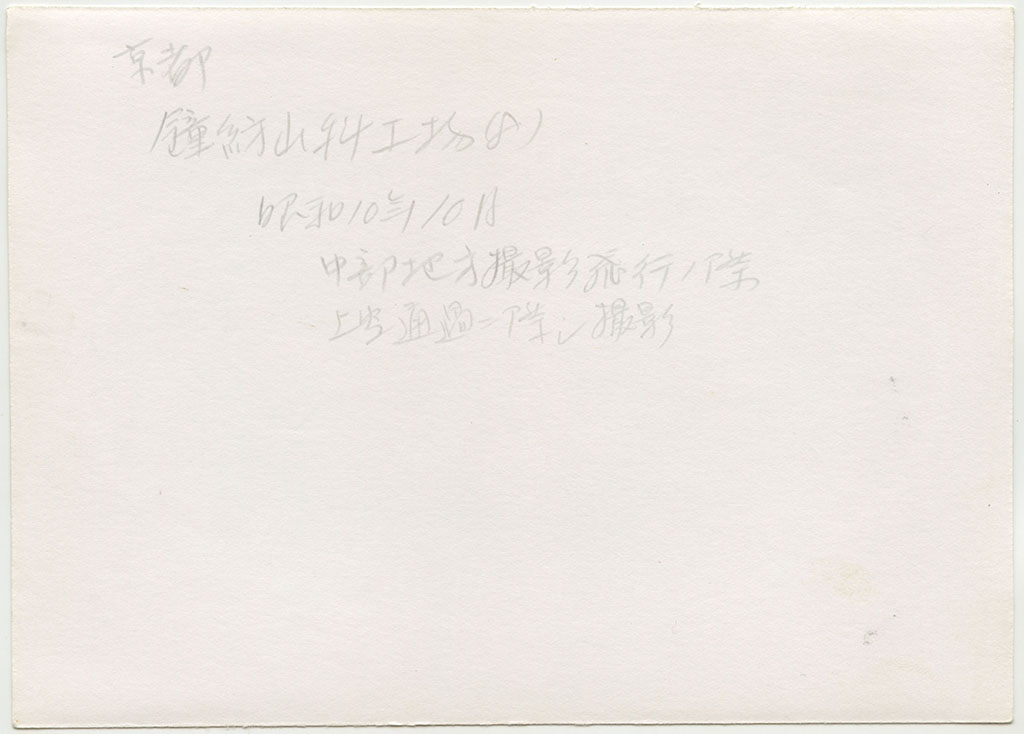 京都
鐘紡山科工場(8)
昭和10年10月
中部地方撮影飛行ノ際
上空通過ニ際シ撮影